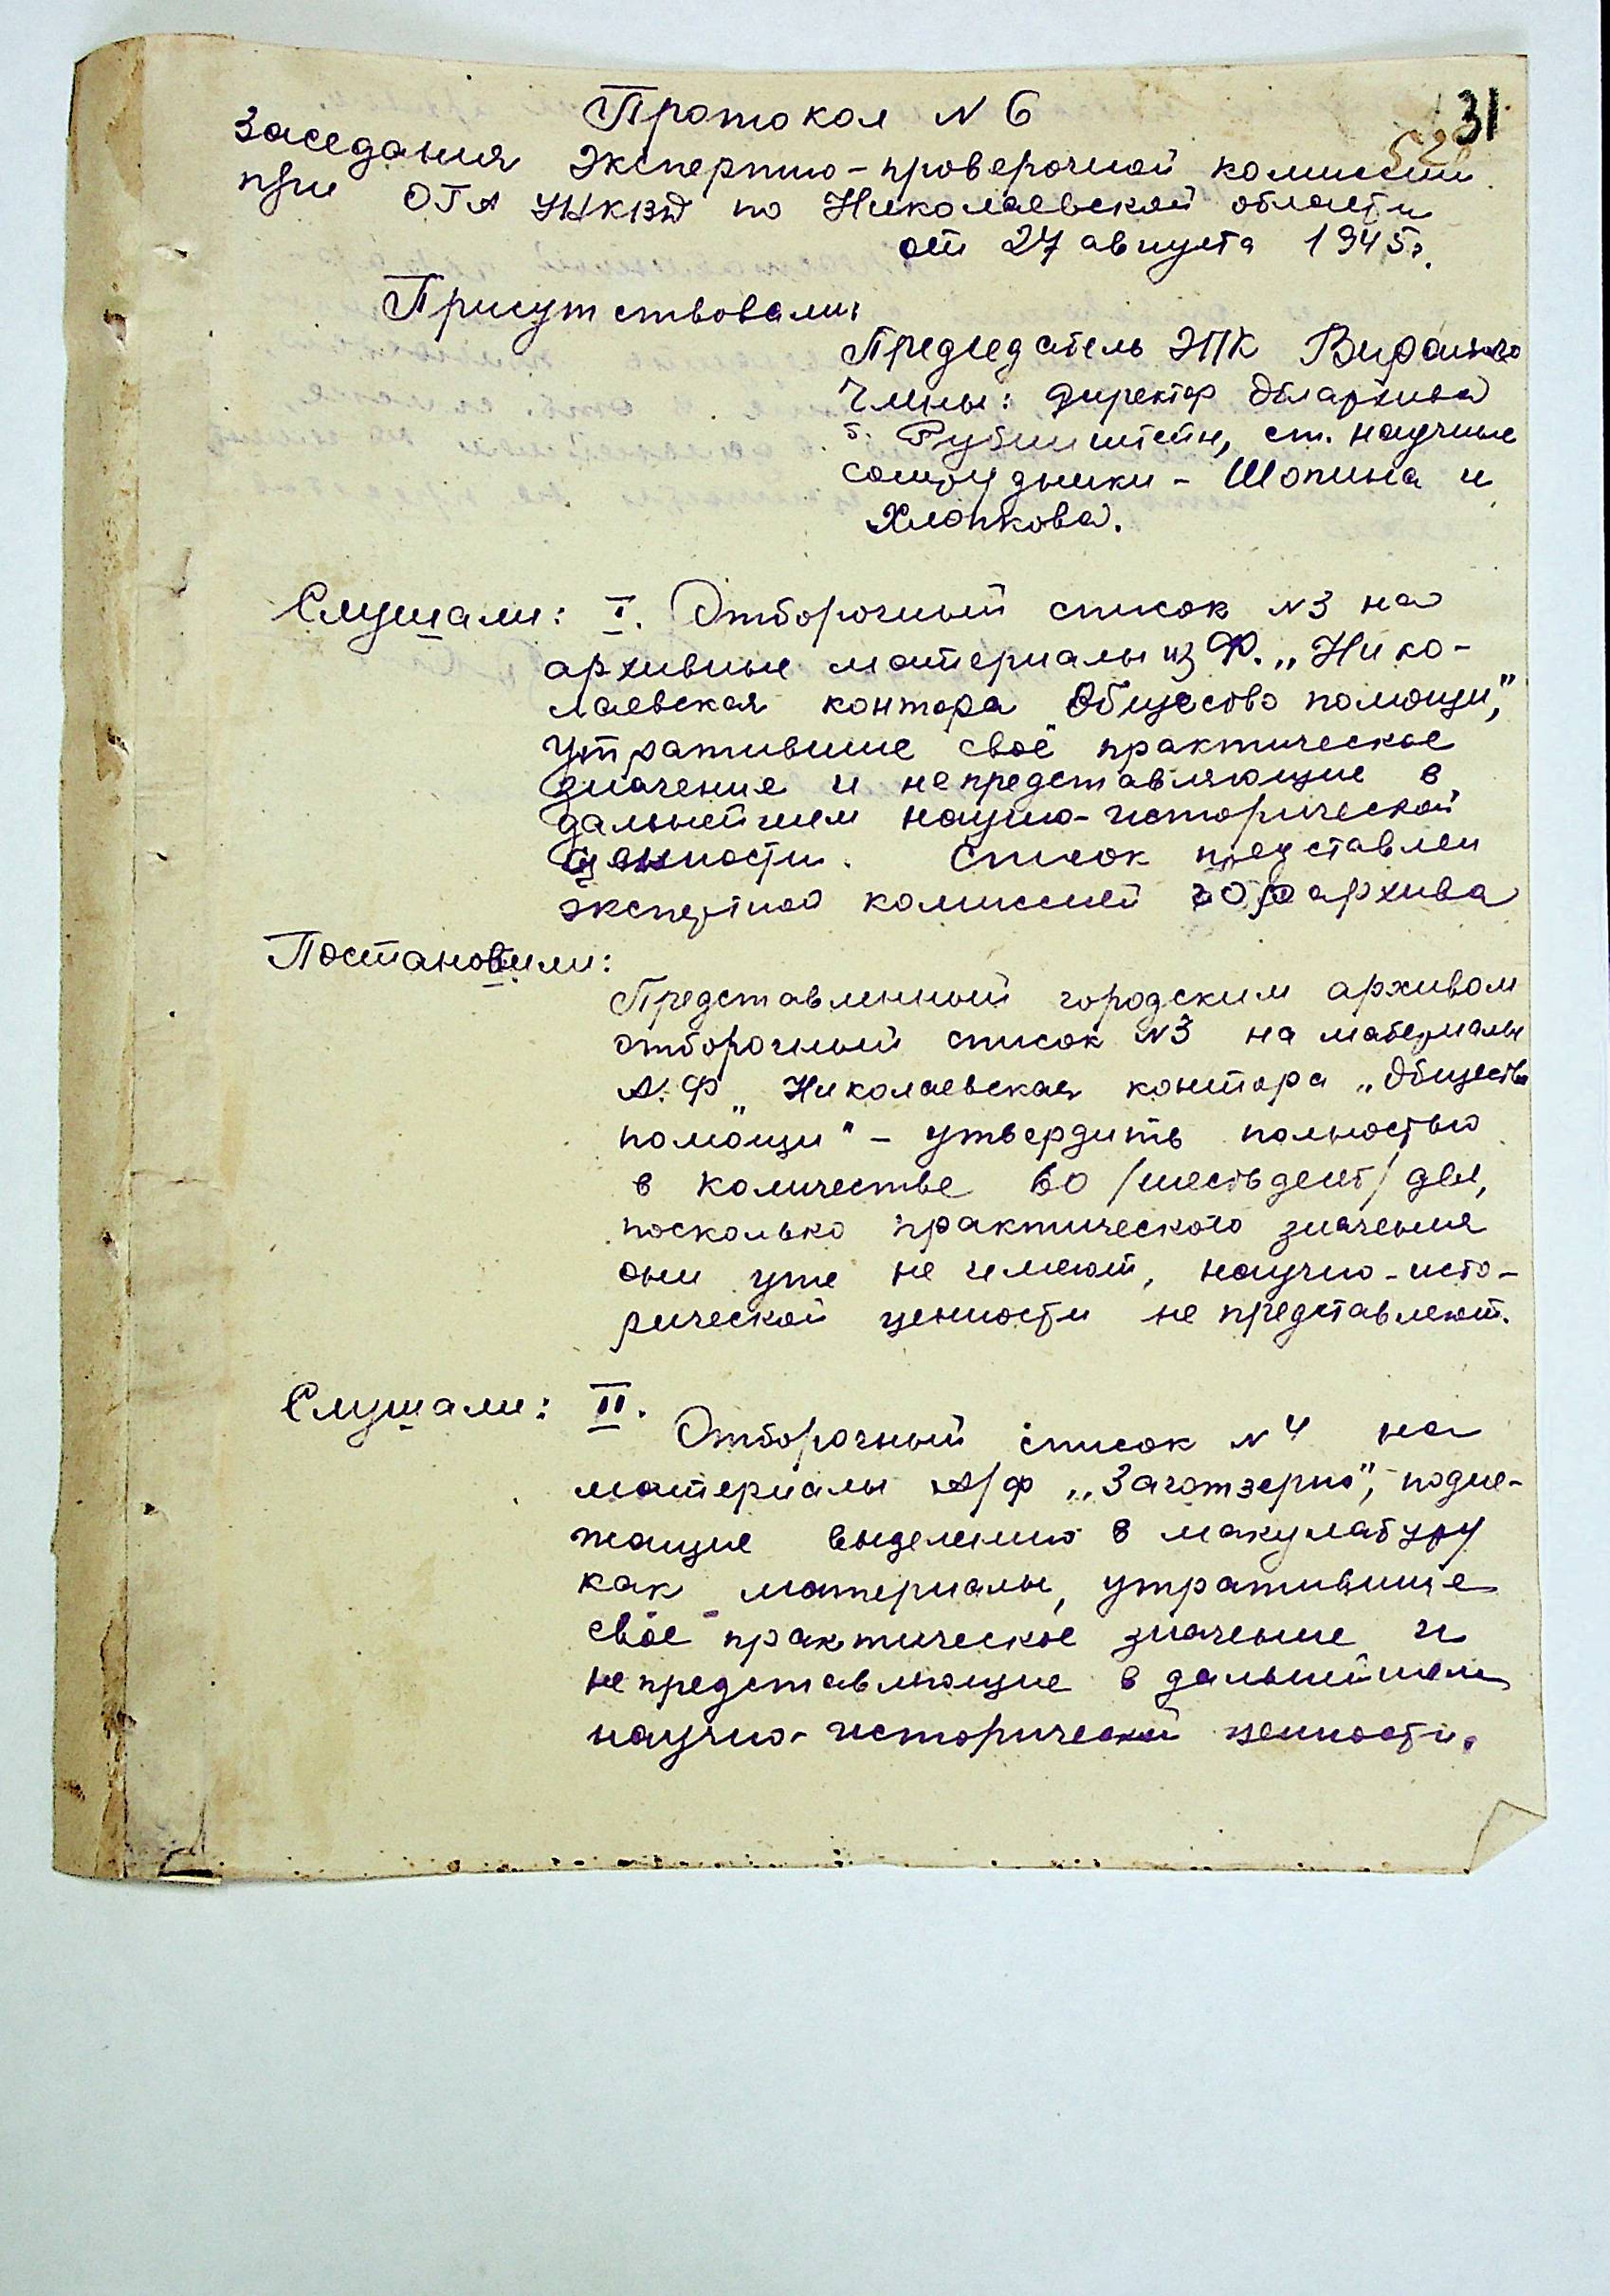 Протокол N 6
31
заседания Экспертно-проверочной комиссии
при ОГА УНКВД по Николаевской области
от 27 августа 1945г.
Присутствовали:
Председатель ЭПК
Члены: директор Облархива
т. Рубинштейн, ст. научные
сотрудники - Шопина и
Хлопкова.
Слушали: I. Отборочный список N3 на
архивные материалы из Ф. „Нико-
лаевская контора "Общесво помощи",
утратившие своё практическое
значение и непредставляющие в
дальнейшем научно-исторической
ценности. Список представлен
экспертной комиссией горархива
Постановили:
Представленный городским архивом
отборочный список N3 на материалы
А.Ф „Николаевская контора „Общества
помощи" - утвердить полностью
в количестве 60 /шестьдест/ дел,
поскольку практического значения
они уже не имеют, научно-исто-
рической ценности не представляют.
Слушали: II.
Отборочный список N4 на
материалы А/ф „Заготзерно", подле-
жащие выделению в макулатуру
как материалы, утратившие
своё практическое значение и
непредставляющие в дальнейшем
научно-исторической ценности.